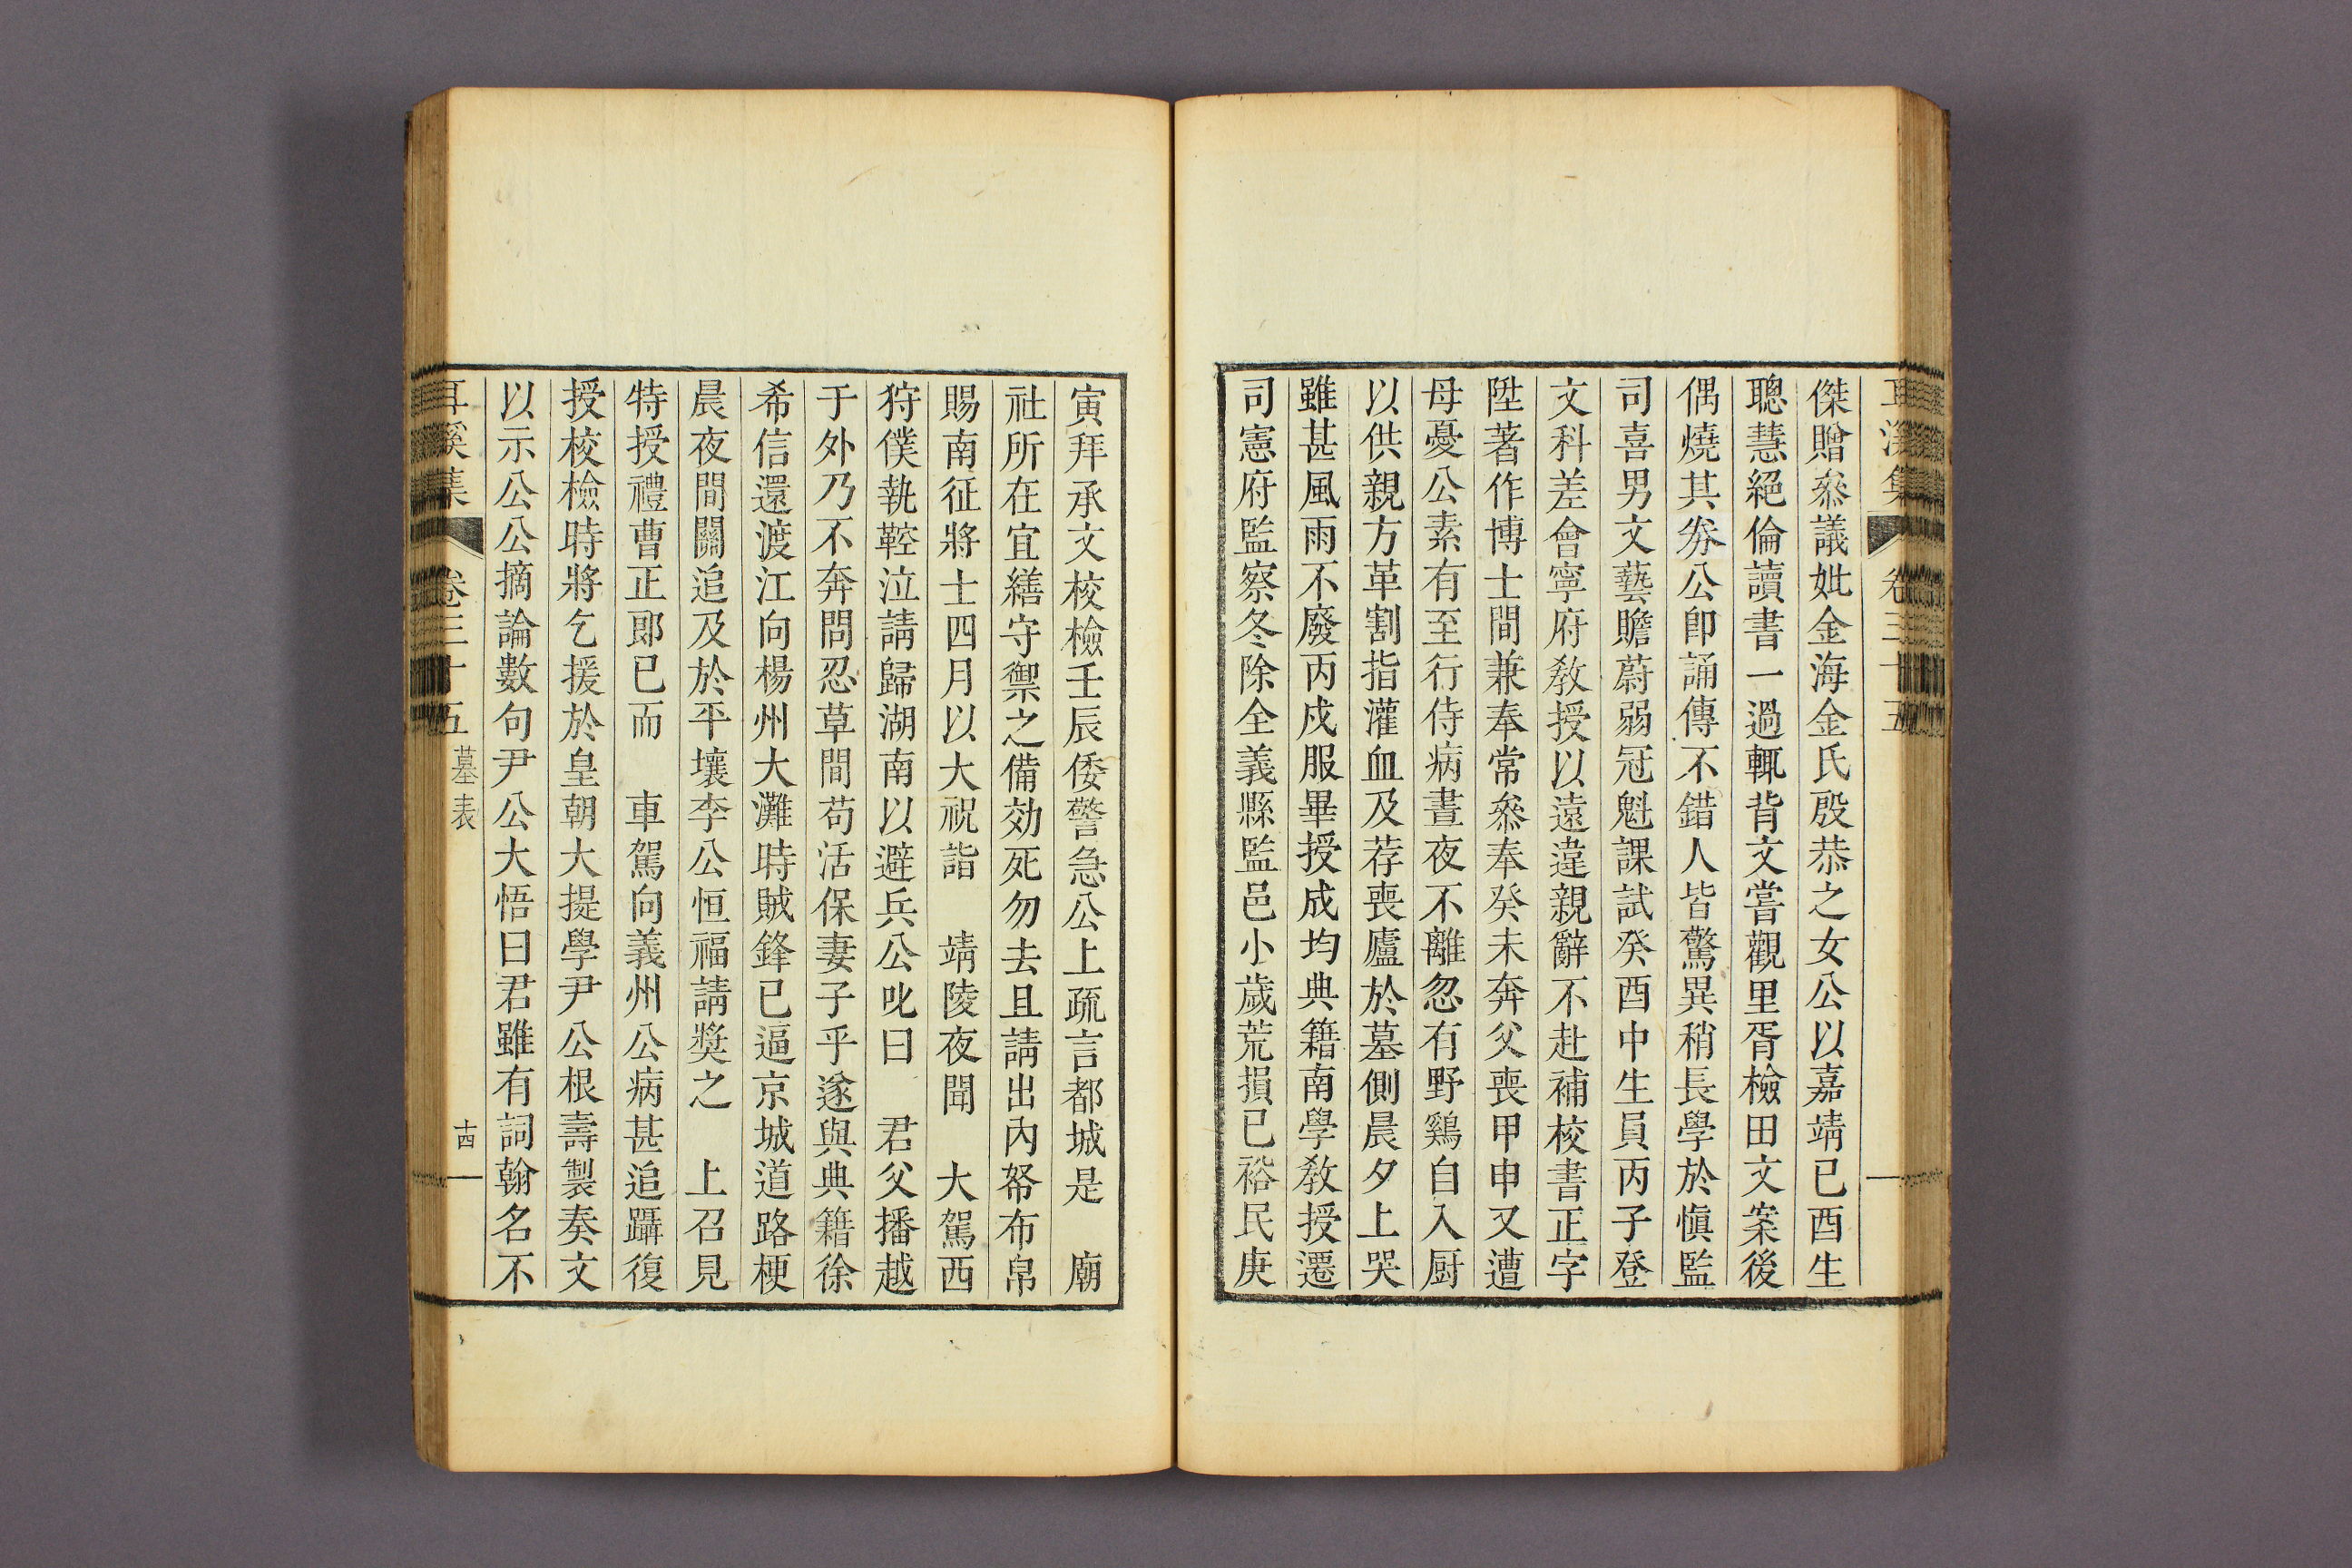 耳溪集 卷三十五
傑贈叅議妣金海金氏殷恭之女公以嘉靖已酉生
聰慧絕倫讀書一過輒背文嘗觀里胥檢田文案後
偶燒其劵公卽誦傳不錯人皆驚異稍長學於愼監
司喜男文藝贍蔚弱冠魁課試癸酉中生員丙子登
文科差會寧府敎授以遠違親辭不赴補校書正字
陞著作博士間兼奉常叅奉癸未奔父喪甲申又遭
母憂公素有至行侍病晝夜不離忽有野鷄自入厨
以供親方革割指灌血及荐喪廬於墓側晨夕上哭
雖甚風雨不廢丙戍服畢授成均典籍南學敎授遷
司憲府監察冬除全義縣監邑小歲荒損已裕民庚
寅拜承文校檢壬辰倭警急公上疏言都城是 廟
社所在宜繕守禦之備効死勿去且請出內帑布帛
賜南征將士四月以大祝詣 靖陵夜聞 大駕西
狩僕執鞚泣請歸湖南以避兵公叱曰 君父播越
于外乃不奔問忍草間苟活保妻子乎遂與典籍徐
希信還渡江向楊州大灘時賊鋒已逼京城道路梗
晨夜間關追及於平壤李公恒福請奬之 上召見
特授禮曹正郞已而 車駕向義州公病甚追躡復
授校檢時將乞援於皇朝大提學尹公根壽製奏文
以示公公摘論數句尹公大悟曰君雖有詞翰名不
耳溪集 卷三十五 墓表 十四